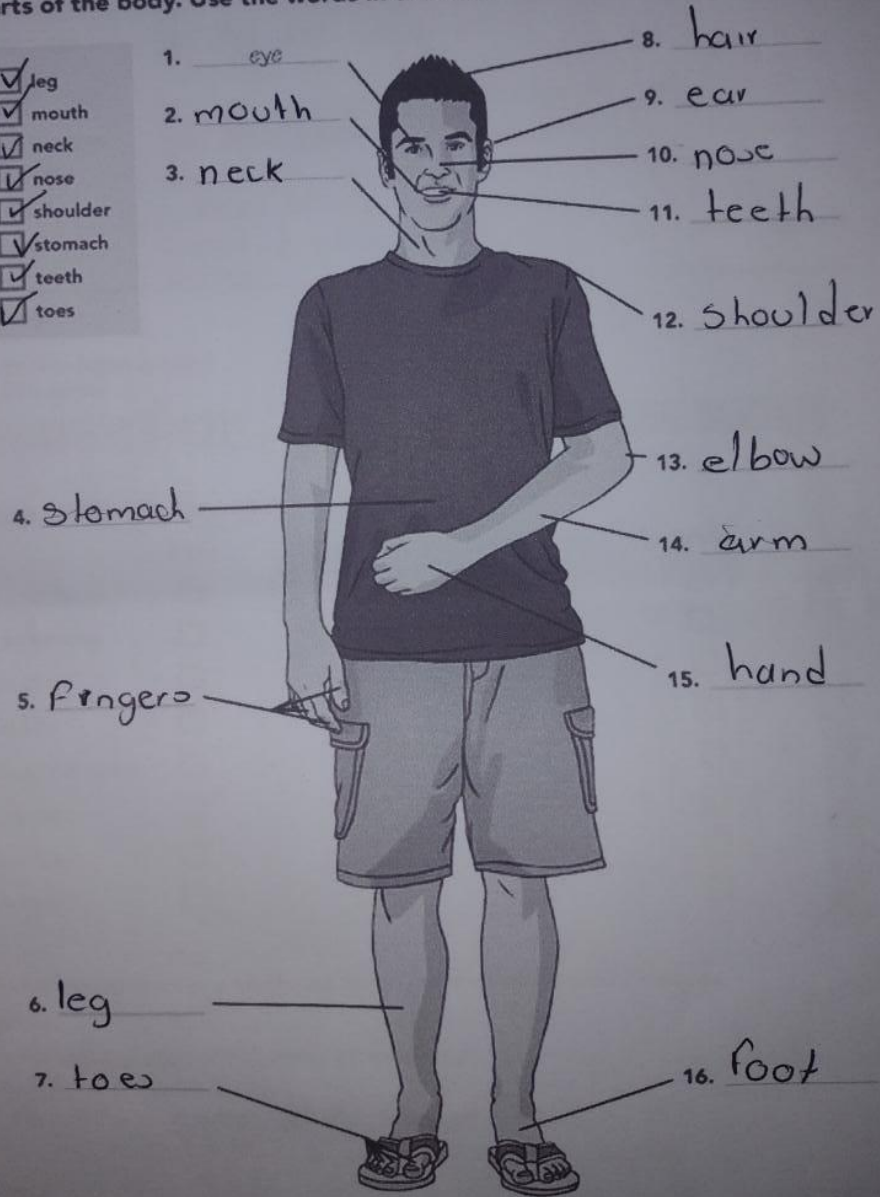 rts of the body. Use the wo
leg
mouth
neck
nose
shoulder
stomach
teeth
toes
1. eye
2. mouth
3. neck
4. stomach
5. fingers
6. leg
7. toes
8. hair
9. ear
10. nose
11. teeth
12. shoulder
13. elbow
14. arm
15. hand
16. foot